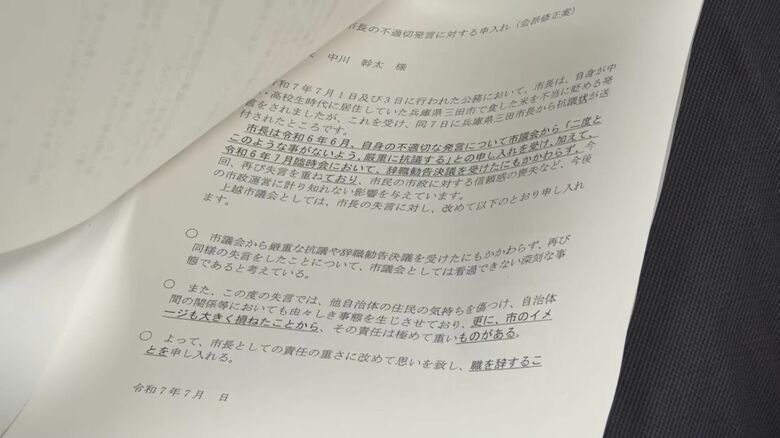 市長の不適切発言に対する申入れ（会派修正案）
中川 幹太 様
令和７年７月１日及び３日に行われた公務において、市長は、自身が中
・高校生時代に居住していた兵庫県三田市で食した米を不当に貶める発
言をされましたが、これを受け、同７日に兵庫県三田市長から抗議状が送
付されたところです。
市長は令和６年６月、自身の不適切な発言について市議会から「二度と
このような事がないよう、厳重に抗議する」との申し入れを受け、加えて、
令和６年７月臨時会において、辞職勧告決議を受けたにもかかわらず、今
回、再び失言を重ねており、市民の市政に対する信頼感の喪失など、今後
の市政運営に計り知れない影響を与えています。
上越市議会としては、市長の失言に対し、改めて以下のとおり申し入れ
ます。
○ 市議会から厳重な抗議や辞職勧告決議を受けたにもかかわらず、再び
同様の失言をしたことについて、市議会としては看過できない深刻な事
態であると考えている。
○ また、この度の失言では、他自治体の住民の気持ちを傷つけ、自治体
間の関係等においても由々しき事態を生じさせており、更に、市のイメ
ージも大きく損ねたことから、その責任は極めて重いものがある。
○ よって、市長としての責任の重さに改めて思いを致し、職を辞するこ
とを申し入れる。
令和７年７月 日